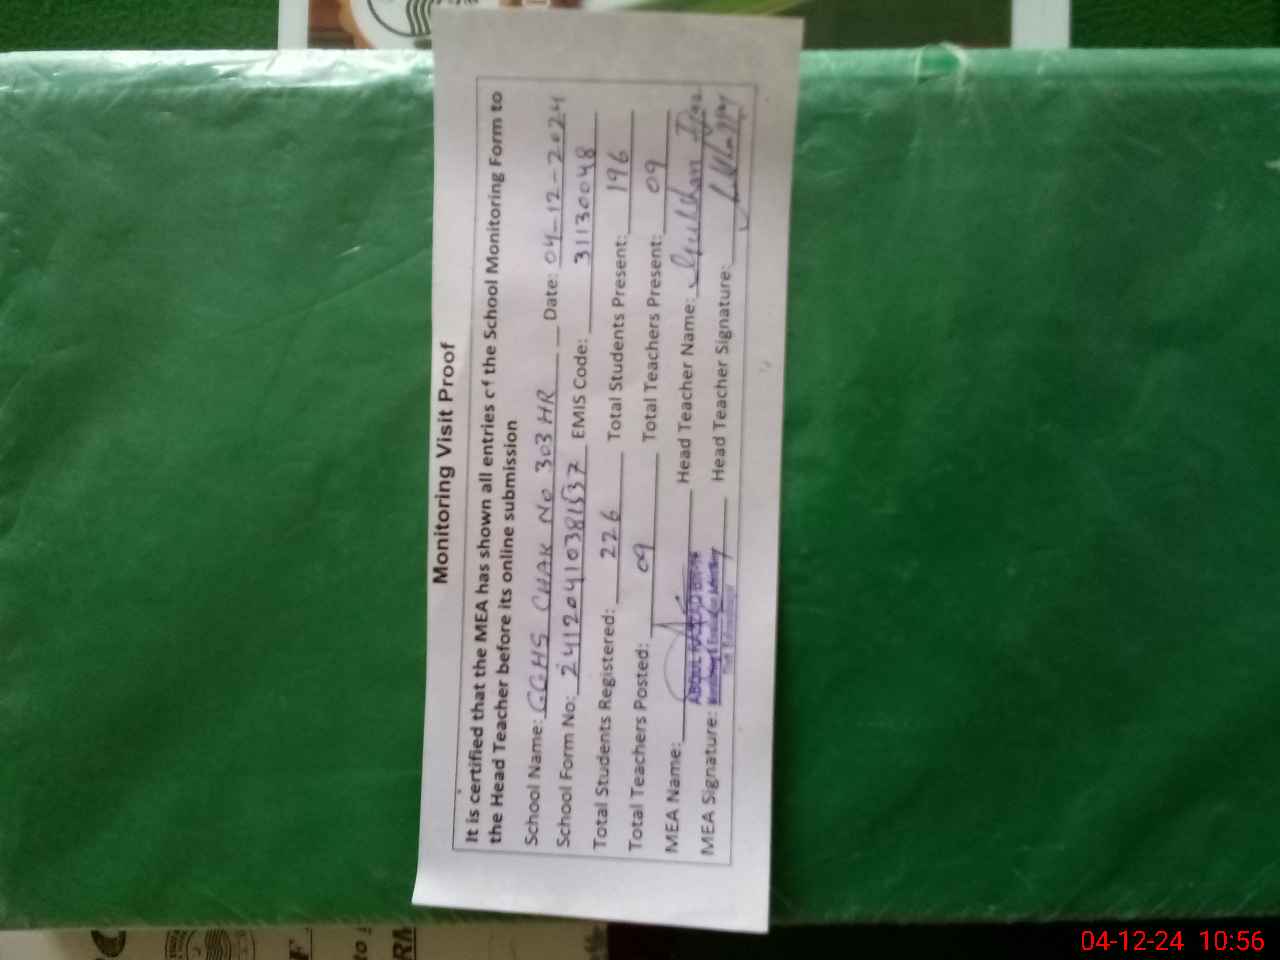 Monitoring Visit Proof
It is certified that the MEA has shown all entries of the School Monitoring Form to
the Head Teacher before its online submission
School Name: GGHS CHAK No 303 HR Date: 04-12-2024
School Form No: 24120410381537 EMIS Code: 31130048
Total Students Registered: 226 Total Students Present: 196
Total Teachers Posted: 09 Total Teachers Present: 09
MEA Name: Head Teacher Name:
ABDUL
MEA Signature: Head Teacher Signature:
04-12-24 10:56